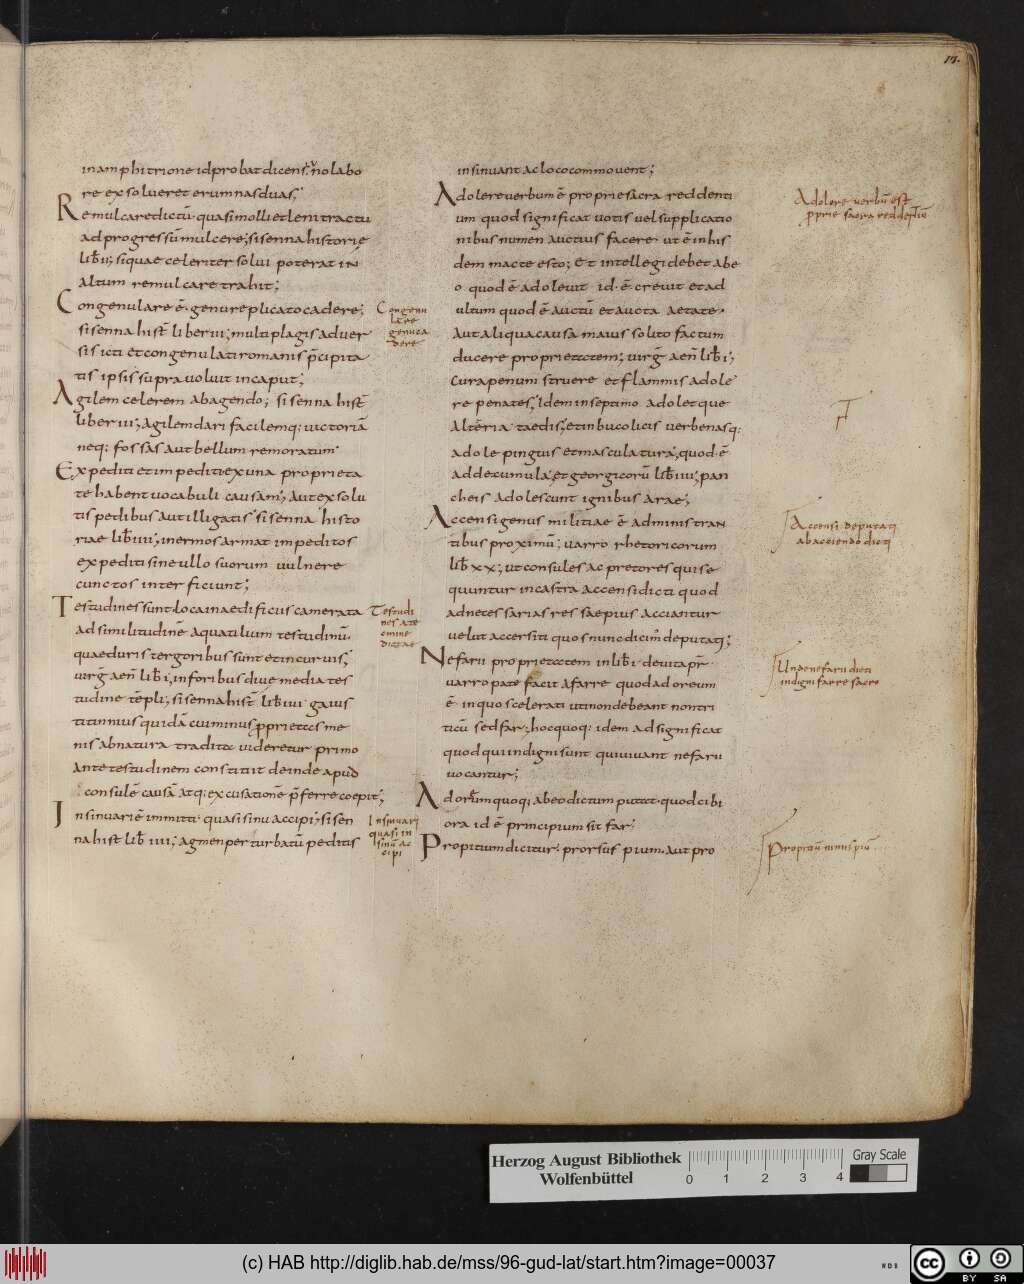 17.
in amphitrione id probat dicens. nolabo
re exsolueret erumnas duas;
Remulcare dictū quasi molli et leni tractu
ad progressū mulcere; sisenna historie
lib̄ ii; si quae celeriter solui poterat in
altum remulcare trahit;
Congenulare ē. genu replicato cadere;
sisenna hist̄ liber iii; multi plagis aduer
sis icti et congenulati romanis p̄cipita
tis ipsis supra uoluit in caput;
Agilem celerem ab agendo; sisenna hist̄
liber iii; agilem dari facilemq: uictoriā
neq: fossas aut bellum remoratum
Expediti et impediti ex una proprieta
te habent uocabuli causam; aut exsolu
tis pedibus aut illigatis sisenna histo
riae lib̄ iiii; inermos armat impeditos
expediti sine ullo suorum uulnere
cunctos interficiunt;
Testudines sunt loca in aedificiis camerata
ad similitudinē aquatilium testudinū.
quae duris tergoribus sunt et incuruis;
uirḡ aen̄ lib̄ i; in foribus diue media tes
tudine tēpli; sisenna hist̄ lib̄ iiii gaius
titinnius quidā cui minus p̄prietas me
nis ab natura tradita uideretur primo
ante testudinem constitit deinde apud
consulē causā atq: excusationē p̄ferre coepit;
Insinuarē immitti. quasi sinu accipi; sisen
na hist̄ lib̄ iiii; agmen perturbatū peditis
Congenu
lare
genu ca
dere
Testudi
nes ate
cmine
dictae
Insinuari
quasi in
sinū ac
cipi
insinuant ac loco commouent;
Adolere uerbum ē proprie sacra reddenti
um quod significat uotis uel supplicatio
nibus numen auctius facere ut ē in his
dem macte esto; Et intellegi debet abe
o quod ē adoleuit id. ē creuit et ad
ultum quod ē auctū et aucta aetate.
aut aliqua causa maius solito factum
ducere proprietatem; uirḡ aen̄ lib̄ i;
cura penum struere et flammis adole
re penates; Idem in septimo adolet que
altēria taedis; et in bucolicis uerbenasq:
adole pinguis et mascula tura; quod ē
adde cumula; et georgicorū lib̄ iiii; pan
cheis adolescunt ignibus arae;
Accensi genus militiae ē administran
tibus proximū; uarro rhetoricorum
lib̄ xx; ut consules ac pretores qui se
quuntur in castra accensi dicti quod
ad necessarias res saepius acciantur
uelut accersiti quos nunc dicim̄ deputatq;
Nefarii proprietatem in lib̄ i de uita p̄r
uarro pate facit a farre quod adoreum
ē in quo scelerati uti non debeant nontri
ticū sed far; hoc quoq: idem adsignificat
quod qui indigni sunt qui uiuant nefarii
uocantur;
Adorium quoq; abeo dictum putat. quod cibi
ora id ē principium sit far;
Propitium dicitur. prorsus pium. aut pro
Adolere uerbū est
pprie sacra reddentiū
Accensi deputati
ab acciendo dicti
Unde nefarii dicti
indigni farre sacro
Herzog August Bibliothek
Wolfenbüttel
Gray Scale
0 1 2 3 4
(c) HAB http://diglib.hab.de/mss/96-gud-lat/start.htm?image=00037
WDB
cc BY SA